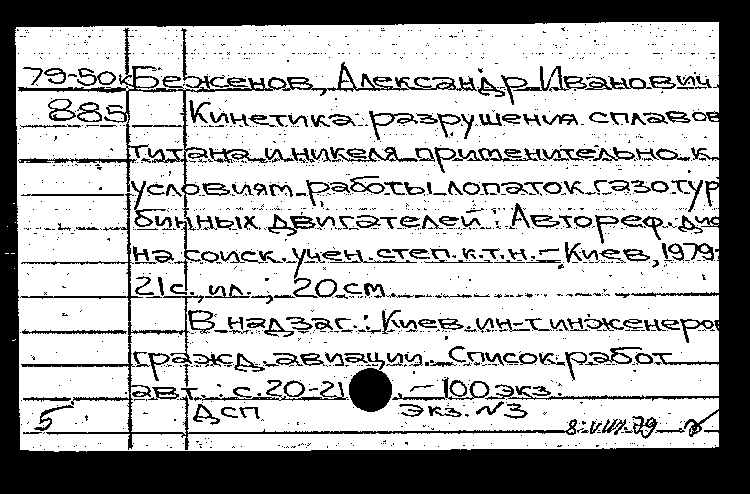 79-50к Беженов, Александр Иванович.
885 Кинетика разрушения сплавов
титана и никеля применительно к
условиям работы лопаток газотур
бинных двигателей : Автореф. дис
на соиск. учен. степ. к.т.н. – Киев, 1979.
21 с., ил. ; 20 см.
В надзаг.: Киев. ин-т инженеров
гражд. авиации. Список работ
авт.: с. 20-21 . – 100 экз.
ДСП экз. №3
5 8.VIII.79